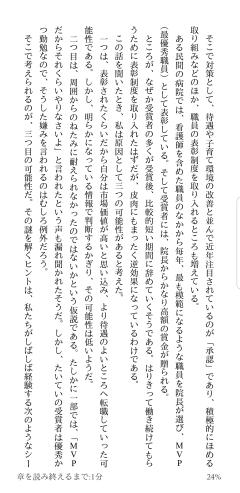 そこで対策として、待遇や子育て環境の改善と並んで近年注目されているのが「承認」であり、積極的にほめる
取り組みなどのほか、職員の表彰制度を取り入れるところも増えている。
ある民間の病院では、看護師を含めた職員のなかから毎年、最も模範になるような職員を院長が選び、MVP
(最優秀職員)として表彰している。そして受賞者には、院長からかなり高額の賞金が贈られる。
ところが、なぜか受賞者の多くが受賞後、比較的短い期間に辞めていくそうである。はりきって働き続けてもら
うために表彰制度を取り入れたはずだが、皮肉にもまったく逆効果になっているわけである。
この話を聞いたとき、私は原因として三つの可能性があると考えた。
一つは、表彰されたくらいだから自分は市場価値が高いと思い込み、より待遇のよいところへ転職していった可
能性である。しかし、明らかになっている情報で判断するかぎり、その可能性は低いようだ。
二つ目は、周囲からのねたみに耐えられなかったのではないかという仮説である。たしかに一部では、「MVP
だからそれくらいやりなさいよ」と言われたという声も漏れ聞かれたそうだ。しかし、たいていの受賞者は優秀か
つ勤勉なので、そうした嫌みを言われるのはむしろ例外だろう。
そこで考えられるのが、三つ目の可能性だ。その謎を解くヒントは、私たちがしばしば経験する次のようなシー
章を読み終えるまで:1分
24%